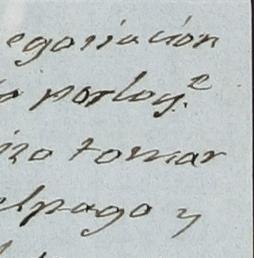 egosiación
o porloq.e
izo tomar
elpago y